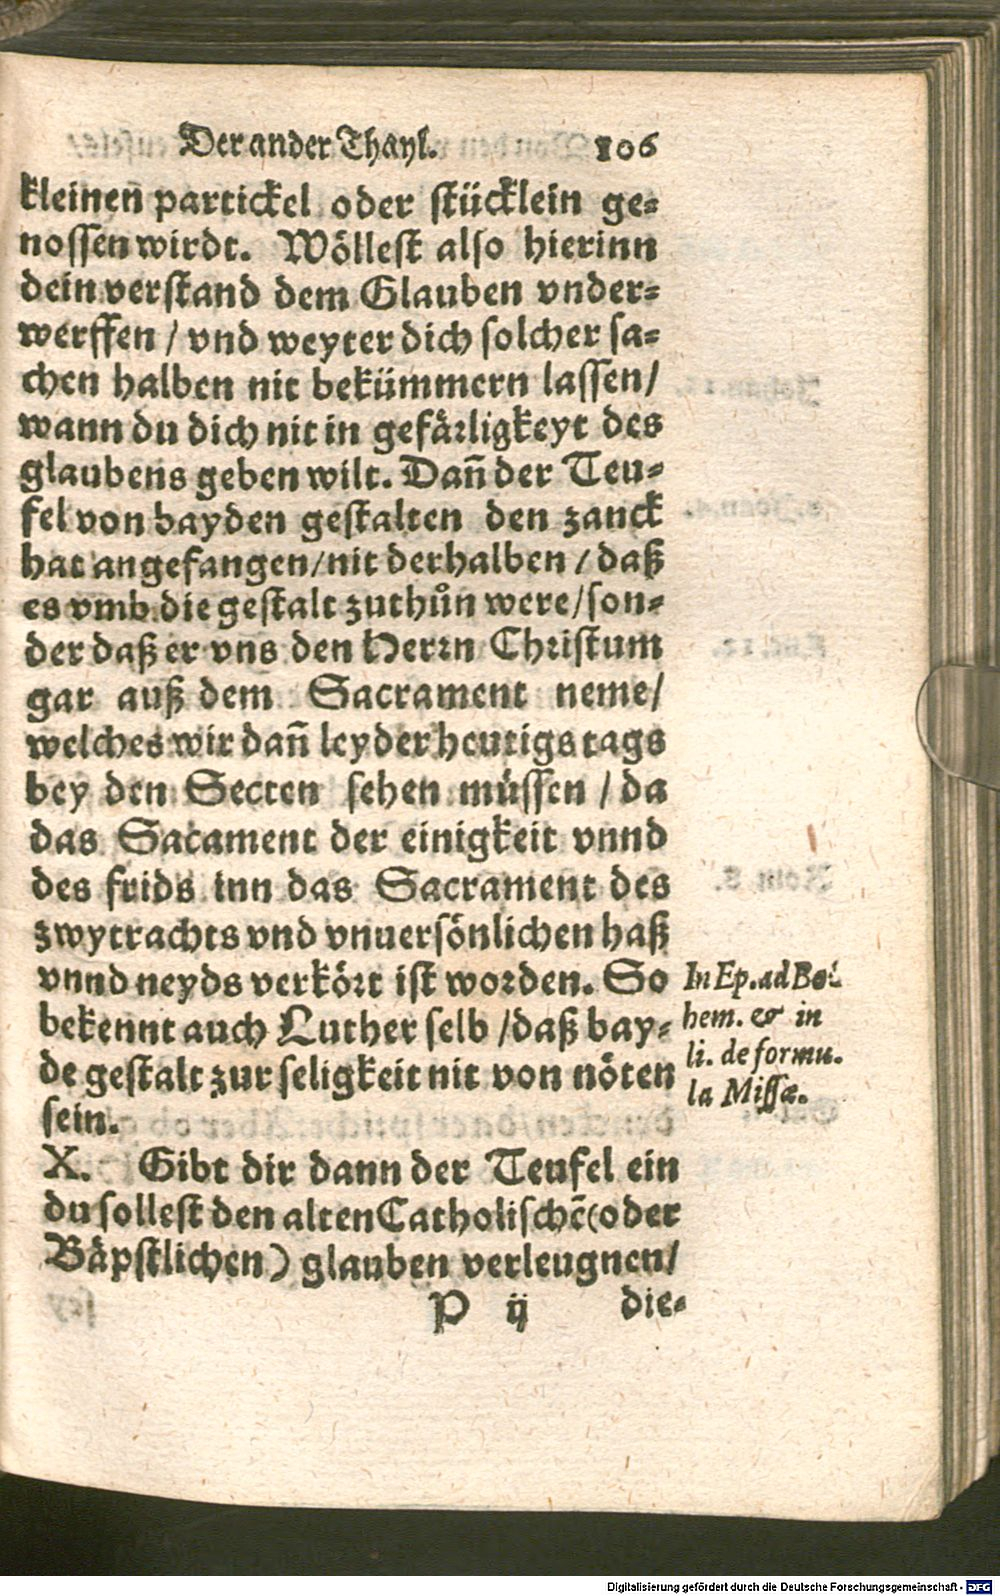 Der ander Thayl. 106
kleinen̄ partickel oder stücklein ge-
nossen wirdt. Wöllest also hierinn
dein verstand dem Glauben vnder-
werffen / vnd weyter dich solcher sa-
chen halben nit bekümmern lassen/
wann du dich nit in gefärligkeyt des
glaubens geben wilt. Dan̄ der Teu-
fel von bayden gestalten den zanck
hat angefangen/nit derhalben / daß
es vmb die gestalt zuthůn were/son-
der daß er vns den Herrn Christum
gar auß dem Sacrament neme/
welches wir dan̄ leyder heutigs tags
bey den Secten sehen müssen / da
das Sacament der einigkeit vnnd
des frids inn das Sacrament des
zwytrachts vnd vnuersönlichen haß
vnnd neyds verkört ist worden. So
bekennt auch Luther selb /daß bay-
de gestalt zur seligkeit nit von nöten
sein.
In Ep. ad Bol
hem. & in
li. de formu.
la Missæ.
X. Gibt dir dann der Teufel ein
du sollest den alten Catholischē (oder
Bäpstlichen) glauben verleugnen/
P ij die-
Digitalisierung gefördert durch die Deutsche Forschungsgemeinschaft - DFG